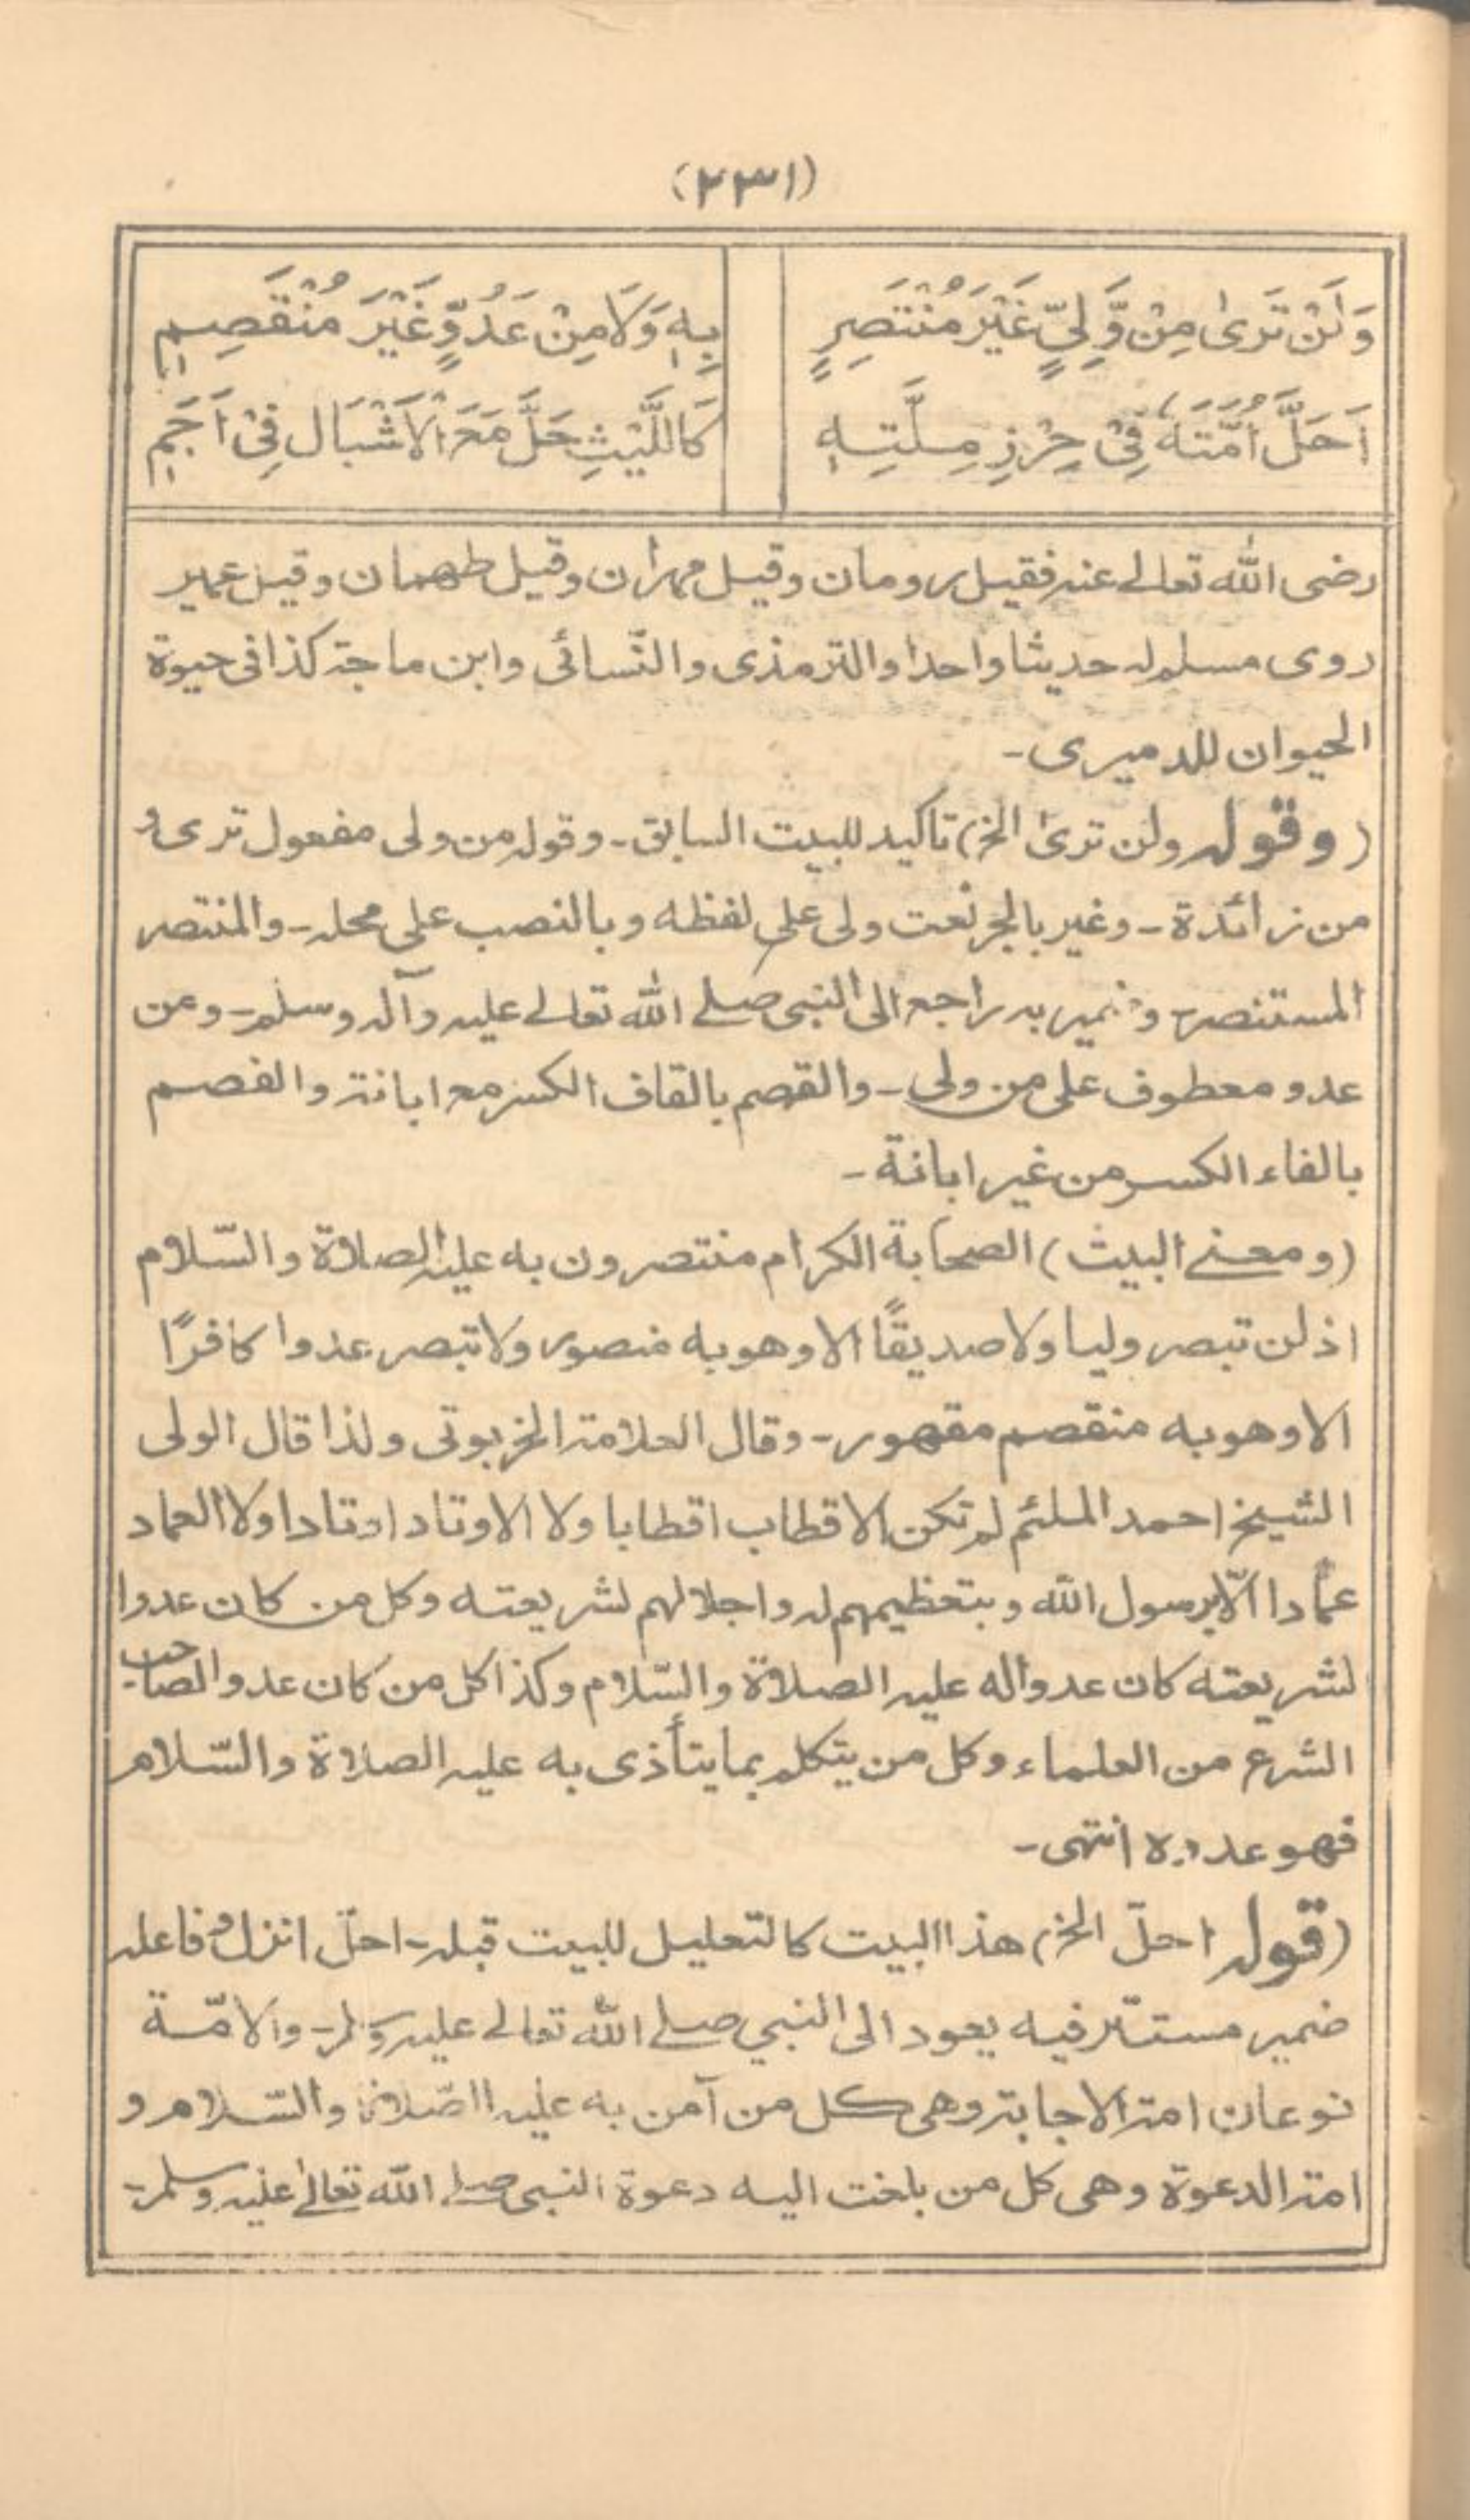 (٢٣١)
وَلَنْ تَرىٰ مِنْ وَّلِيٍّ غَيْرَ مُنْتَصِرٍ
بِهٖ وَلَا مِنْ عَدُوٍّ غَيْرَ مُنْقَصِمٖ
اَحَلَّ اُمَّتَهٗ فِىْ حِرْزِ مِلَّتِهٖ
كَاللَّيْثِ حَلَّ مَعَ الْاَشْبَالِ فِىْ اَجَمٖ
رضى الله تعالے عنه فقيل رومان وقيل مهران وقيل طهمان وقيل عمير
روى مسلم له حديثا واحدا والترمذى والنّسائى وابن ماجة كذا فى حيوة
الحيوان للدميرى-
(وقوله ولن ترىٰ الخ) تاكيد للبيت السابق- وقوله من ولى مفعول ترى و
من زائدة- وغير بالجر نعت ولى على لفظه وبالنصب على محله- والمنتصر
المستنصر وضمير به راجع الى النبى صلے الله تعالے عليه وآله وسلم- ومن
عدو معطوف على من ولى- والقصم بالقاف الكسر مع ابانة والفصم
بالفاء الكسر من غير ابانة-
(ومعنے البيت) الصحابة الكرام منتصرون به عليه الصلاة والسّلام
اذ لن تبصر وليا ولا صديقًا الا وهو به منصور ولا تبصر عدوا كافرًا
الا وهو به منقصم مقهور- وقال العلامة الخربوتى ولذا قال الولى
الشيخ احمد الملثم لم تكن الاقطاب اقطابا ولا الاوتاد اوتادا ولا العماد
عمادا الّا برسول الله وبتعظيمهم له واجلالهم لشريعته وكل من كان عدوا
لشريعته كان عدوا له عليه الصلاة والسّلام وكذا كل من كان عدوا لصاحب
الشرع من العلماء وكل من يتكلم بما يتأذى به عليه الصلاة والسّلام
فهو عدوه انتهى-
(قوله احلّ الخ) هذا البيت كالتعليل للبيت قبله- احلّ انزل وفاعله
ضمير مستتر فيه يعود الى النبي صلے الله تعالے عليه وسلم- والامّة
نوعان امة الاجابة وهى كل من آمن به عليه الصّلاة والسّلام و
امة الدعوة وهى كل من بلغت اليه دعوة النبى صلے الله تعالےٰ عليه وسلم-